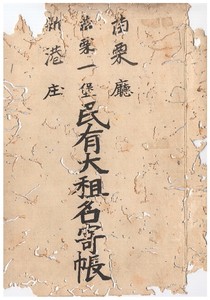 苗栗廳
苗栗一堡
新港庄
民有大租名寄帳